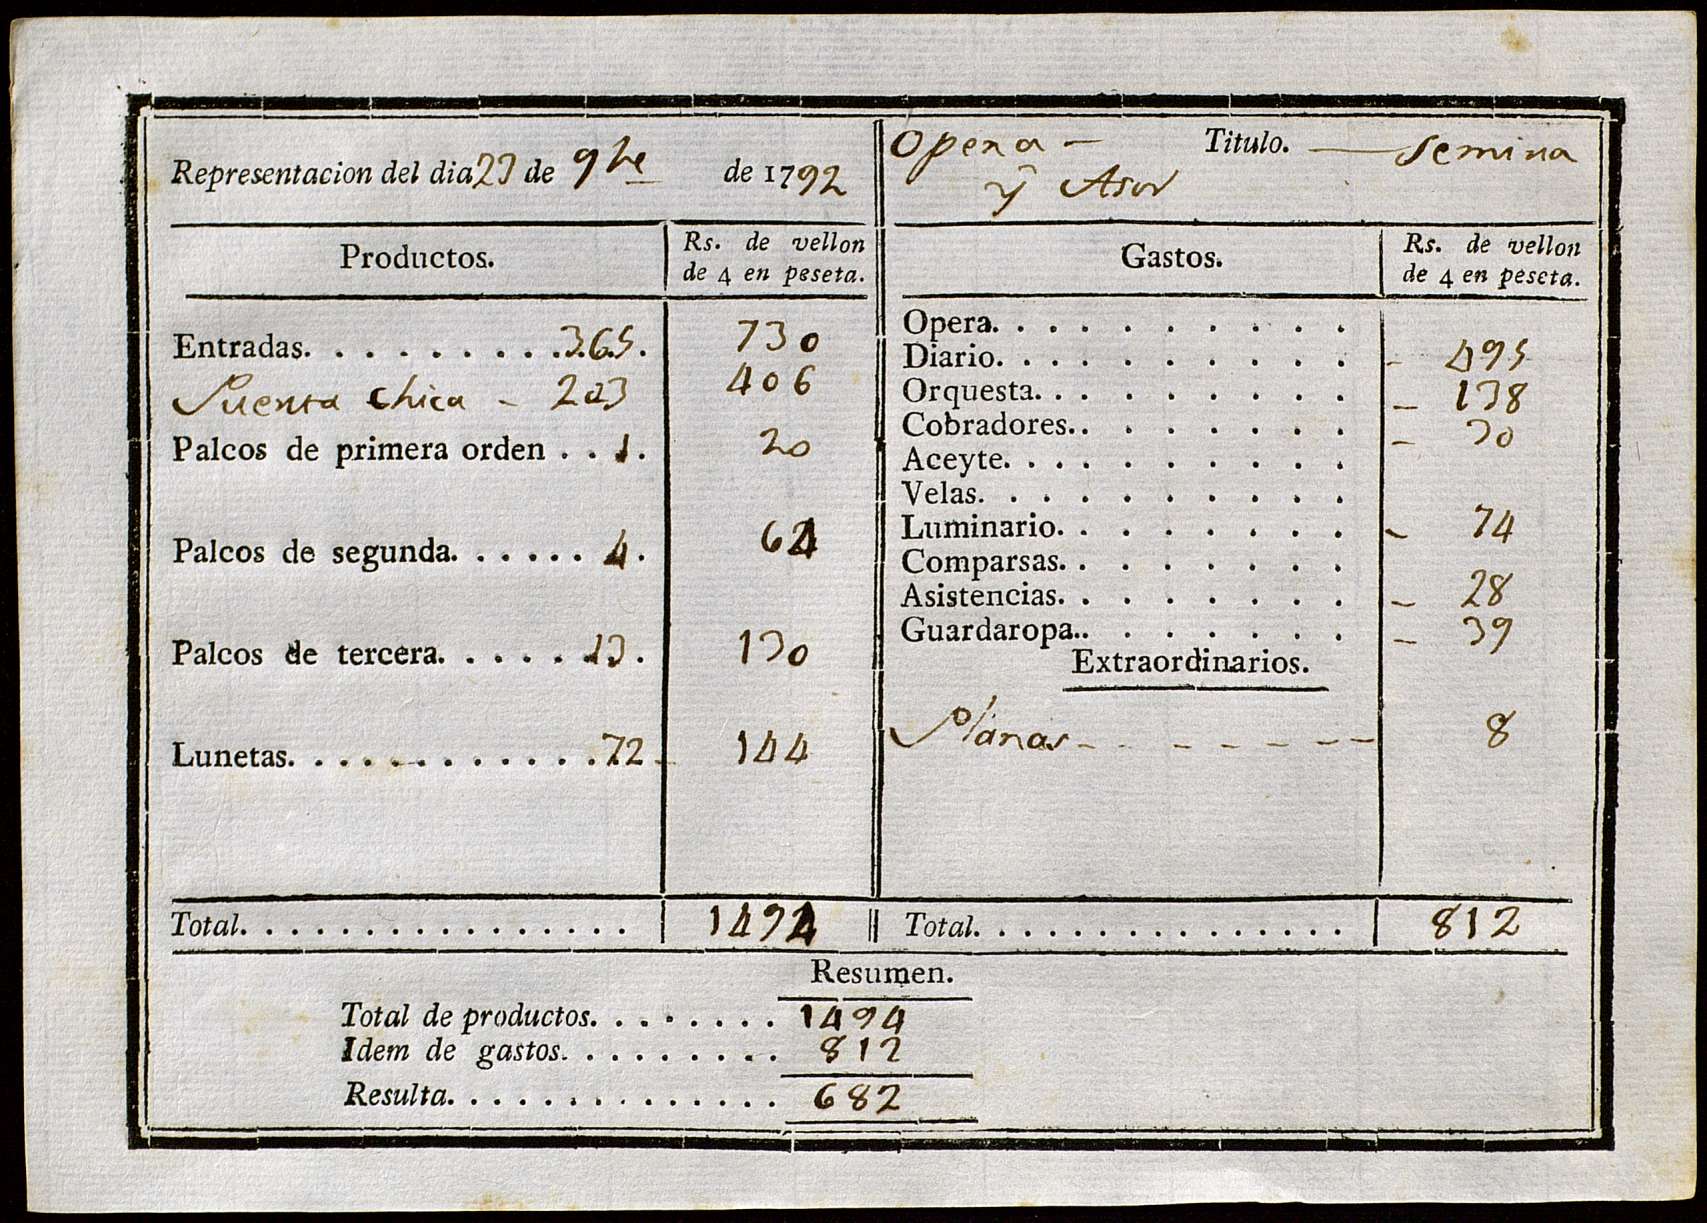 Representacion del dia 23 de 9bre de 1792
Opera - Titulo. - Semira
y Asor
Productos.
Rs. de vellon
de 4 en peseta.
Gastos.
Rs. de vellon
de 4 en peseta.
Entradas. . . . . . . . . . 365. 730
Puerta chica - 203 406
Palcos de primera orden . . 1. 20
Palcos de segunda. . . . . . 4. 64
Palcos de tercera. . . . . . 13. 130
Lunetas. . . . . . . . . . . . . 72 144
Opera. . . . . . . . . .
Diario. . . . . . . . . . - 495
Orquesta. . . . . . . . . - 138
Cobradores. . . . . . . . - 30
Aceyte. . . . . . . . . .
Velas. . . . . . . . . .
Luminario. . . . . . . . - 74
Comparsas. . . . . . . .
Asistencias. . . . . . . . - 28
Guardaropa. . . . . . . . - 39
Extraordinarios.
Planas - - - - - - - 8
Total. . . . . . . . . . . . . . . . 1494
Total. . . . . . . . . . . . . . . . 812
Resumen.
Total de productos. . . . . . . . 1494
Idem de gastos. . . . . . . . . 812
Resulta. . . . . . . . . . . . . . 682